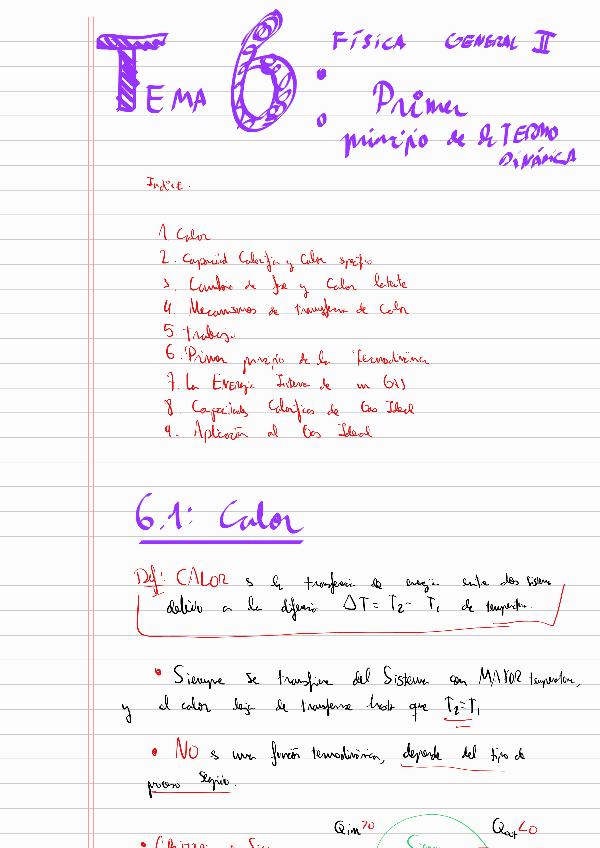 TEMA 6:
FÍSICA GENERAL II
Primer
principio de la TERMO
DINÁMICA
Indice.
1. Calor
2. Capacidad Calorífica y Calor
3. Cambio de fase y Calor latente
4. Mecanismos de transferencia de Calor
5. Trabajo
6. Primer principio de la Termodinámica
7. La Energía Interna de un GAS
8 Capacidades Caloríficas de Gas Ideal
9. Aplicación al Gas Ideal
6.1: Calor
Def: CALOR s la transferencia de energía entre dos sistemas
debido a la diferencia ΔT = T2 - T1 de temperatura.
• Siempre se transfiere del Sistema con MAYOR temperatura,
y el calor deja de transferirse hasta que T2=T1
• NO s una función termodinámica, depende del tipo de
proceso seguido.
Qin>0 Qout<0